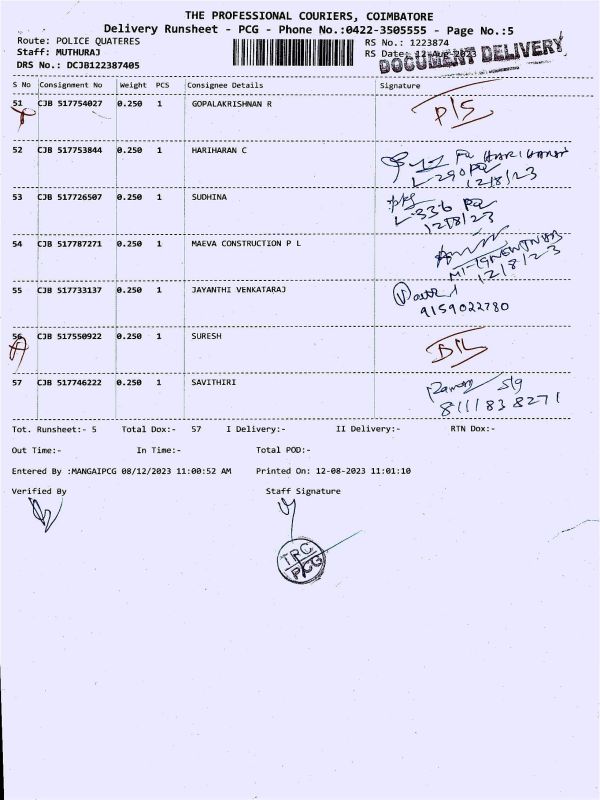 THE PROFESSIONAL COURIERS, COIMBATORE
Delivery Runsheet - PCG - Phone No.:0422-3505555 - Page No.:5
Route: POLICE QUATERES
RS No.: 1223874
Staff: MUTHURAJ
RS Date: 12-Aug-2023
DOCUMENT DELIVERY
DRS No.: DCJB122387405
S No Consignment No Weight PCS Consignee Details Signature
51 CJB 517754027 0.250 1 GOPALAKRISHNAN R
52 CJB 517753844 0.250 1 HARIHARAN C
HARIHARAN
L-290
12/8/23
53 CJB 517726507 0.250 1 SUDHINA
L-336
12/8/23
54 CJB 517787271 0.250 1 MAEVA CONSTRUCTION P L
12/8/23
55 CJB 517733137 0.250 1 JAYANTHI VENKATARAJ
9159022780
56 CJB 517550922 0.250 1 SURESH
D/L
57 CJB 517746222 0.250 1 SAVITHIRI
8111838271
Tot. Runsheet:- 5 Total Dox:- 57 I Delivery:- II Delivery:- RTN Dox:-
Out Time:- In Time:- Total POD:-
Entered By :MANGAIPCG 08/12/2023 11:00:52 AM Printed On: 12-08-2023 11:01:10
Verified By Staff Signature
TPC
PCG